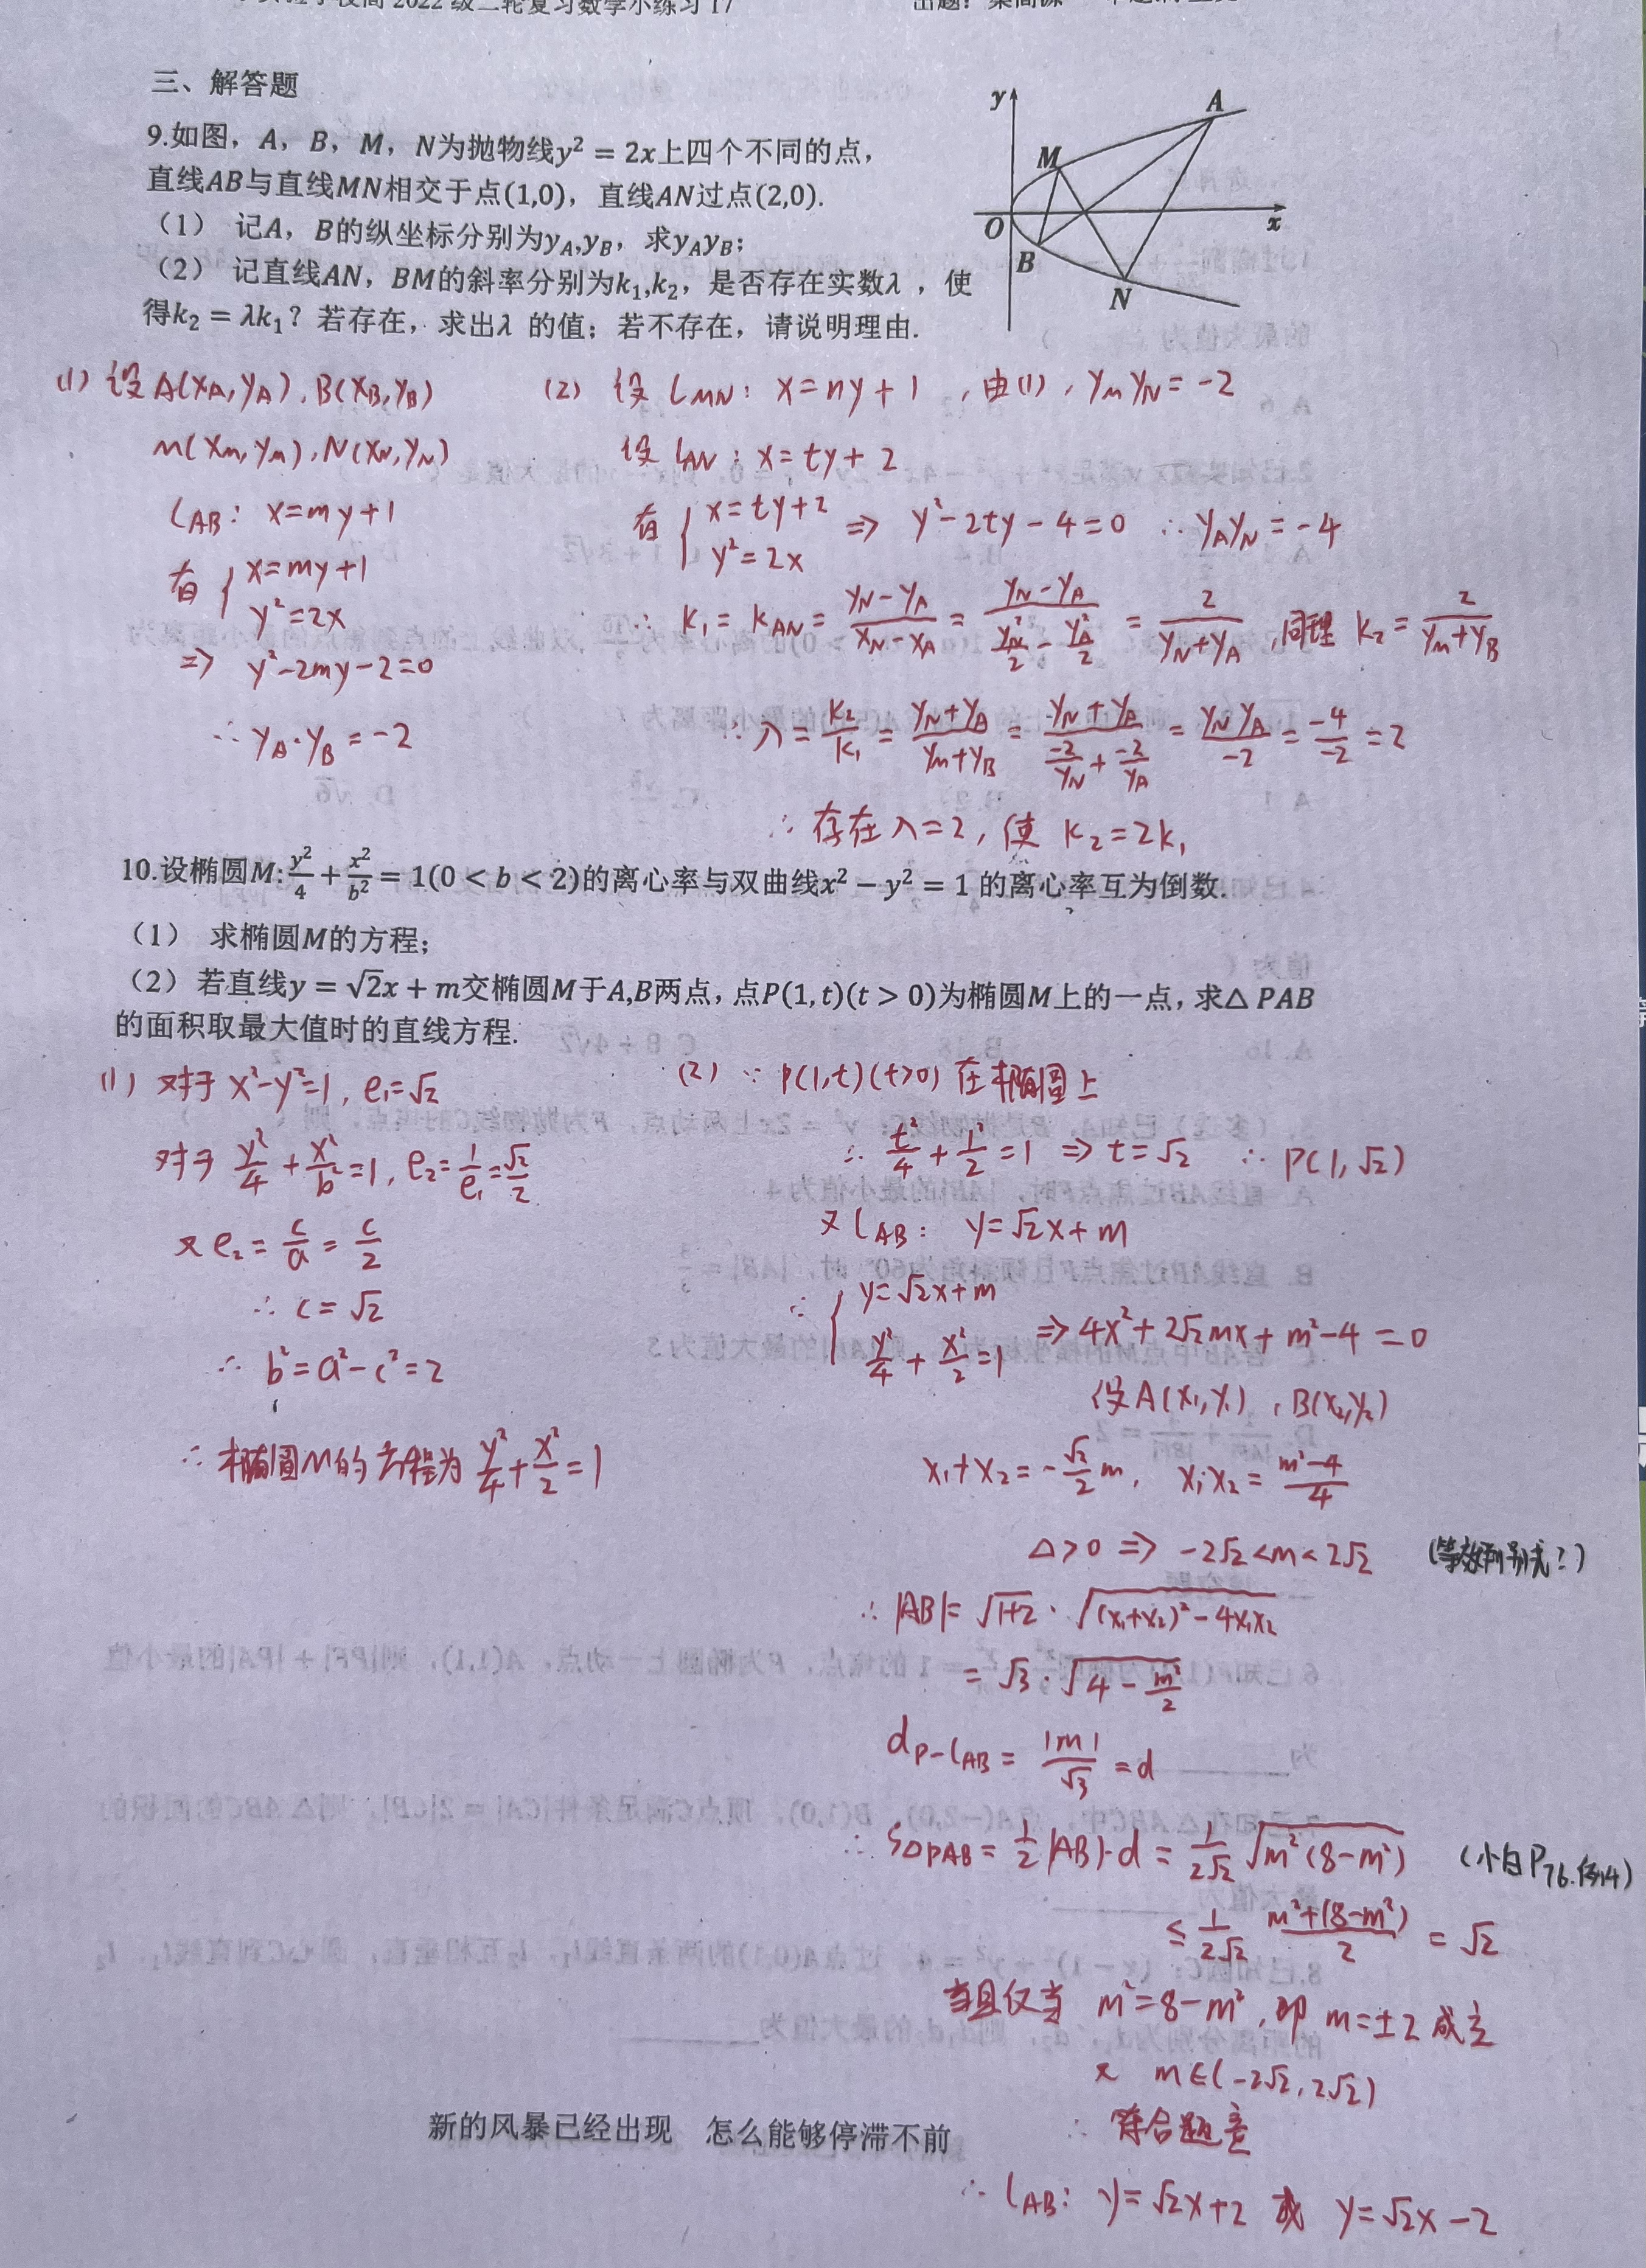 级二轮复习数学小练习17
三、解答题
9.如图，A，B，M，N为抛物线y²=2x上四个不同的点，
直线AB与直线MN相交于点(1,0)，直线AN过点(2,0).
（1） 记A，B的纵坐标分别为y_A,y_B，求y_Ay_B；
（2） 记直线AN，BM的斜率分别为k₁,k₂，是否存在实数λ，使
得k₂=λk₁？若存在，求出λ的值；若不存在，请说明理由.
y
A
M
O
x
B
N
(1) 设A(x_A,y_A), B(x_B,y_B)
M(x_M,y_M), N(x_N,y_N)
l_AB: x=my+1
有 { x=my+1
y²=2x
⇒ y²-2my-2=0
∴ y_A·y_B=-2
(2) 设 l_MN: x=ny+1, 由(1), y_M y_N=-2
设 l_AN: x=ty+2
有 { x=ty+2 ⇒ y²-2ty-4=0 ∴ y_Ay_N=-4
y²=2x
∴ k₁=k_AN=(y_N-y_A)/(x_N-x_A)=(y_N-y_A)/(y_N²/2-y_A²/2)=2/(y_N+y_A), 同理 k₂=2/(y_M+y_B)
∴ λ=k₂/k₁=(y_N+y_A)/(y_M+y_B)=(y_N+y_A)/(-2/y_N+-2/y_A)=y_Ny_A/-2=-4/-2=2
∴ 存在λ=2, 使 k₂=2k₁
10.设椭圆M:y²/4+x²/b²=1(0<b<2)的离心率与双曲线x²-y²=1的离心率互为倒数.
（1） 求椭圆M的方程；
（2） 若直线y=√2x+m交椭圆M于A,B两点，点P(1,t)(t>0)为椭圆M上的一点，求△PAB
的面积取最大值时的直线方程.
(1) 对于 x²-y²=1, e₁=√2
对于 y²/4+x²/b²=1, e₂=1/e₁=√2/2
又 e₂=c/a=c/2
∴ c=√2
∴ b²=a²-c²=2
∴ 椭圆M的方程为 y²/4+x²/2=1
(2) ∵ P(1,t)(t>0)在椭圆上
∴ t²/4+1²/2=1 ⇒ t=√2 ∴ P(1,√2)
又 l_AB: y=√2x+m
∴ { y=√2x+m
y²/4+x²/2=1 ⇒ 4x²+2√2mx+m²-4=0
设A(x₁,y₁), B(x₂,y₂)
x₁+x₂=-√2/2 m, x₁x₂=(m²-4)/4
Δ>0 ⇒ -2√2<m<2√2 (等效判别式?)
∴ |AB|=√(1+2)·√((x₁+x₂)²-4x₁x₂)
=√3·√(4-m²/2)
d_P-l_AB=|m|/√3=d
∴ S△PAB=1/2|AB|·d=1/(2√2) √(m²(8-m²)) (小白P76.例4)
≤1/(2√2) (m²+(8-m²))/2=√2
当且仅当 m²=8-m², 即 m=±2 成立
又 m∈(-2√2,2√2)
∴ 符合题意
∴ l_AB: y=√2x+2 或 y=√2x-2
新的风暴已经出现 怎么能够停滞不前